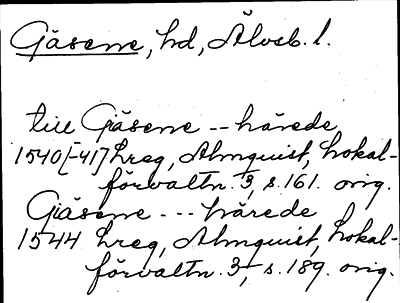 Gäsene, hd, Älvsb. l.
till Giäsene -- härede
1540[-41] hreg, Almquist, Lokal-
förvaltn. 3, s. 161. orig.
Giäsene --- härede
1544 hreg, Almquist, Lokal-
förvaltn. 3, s. 189. orig.